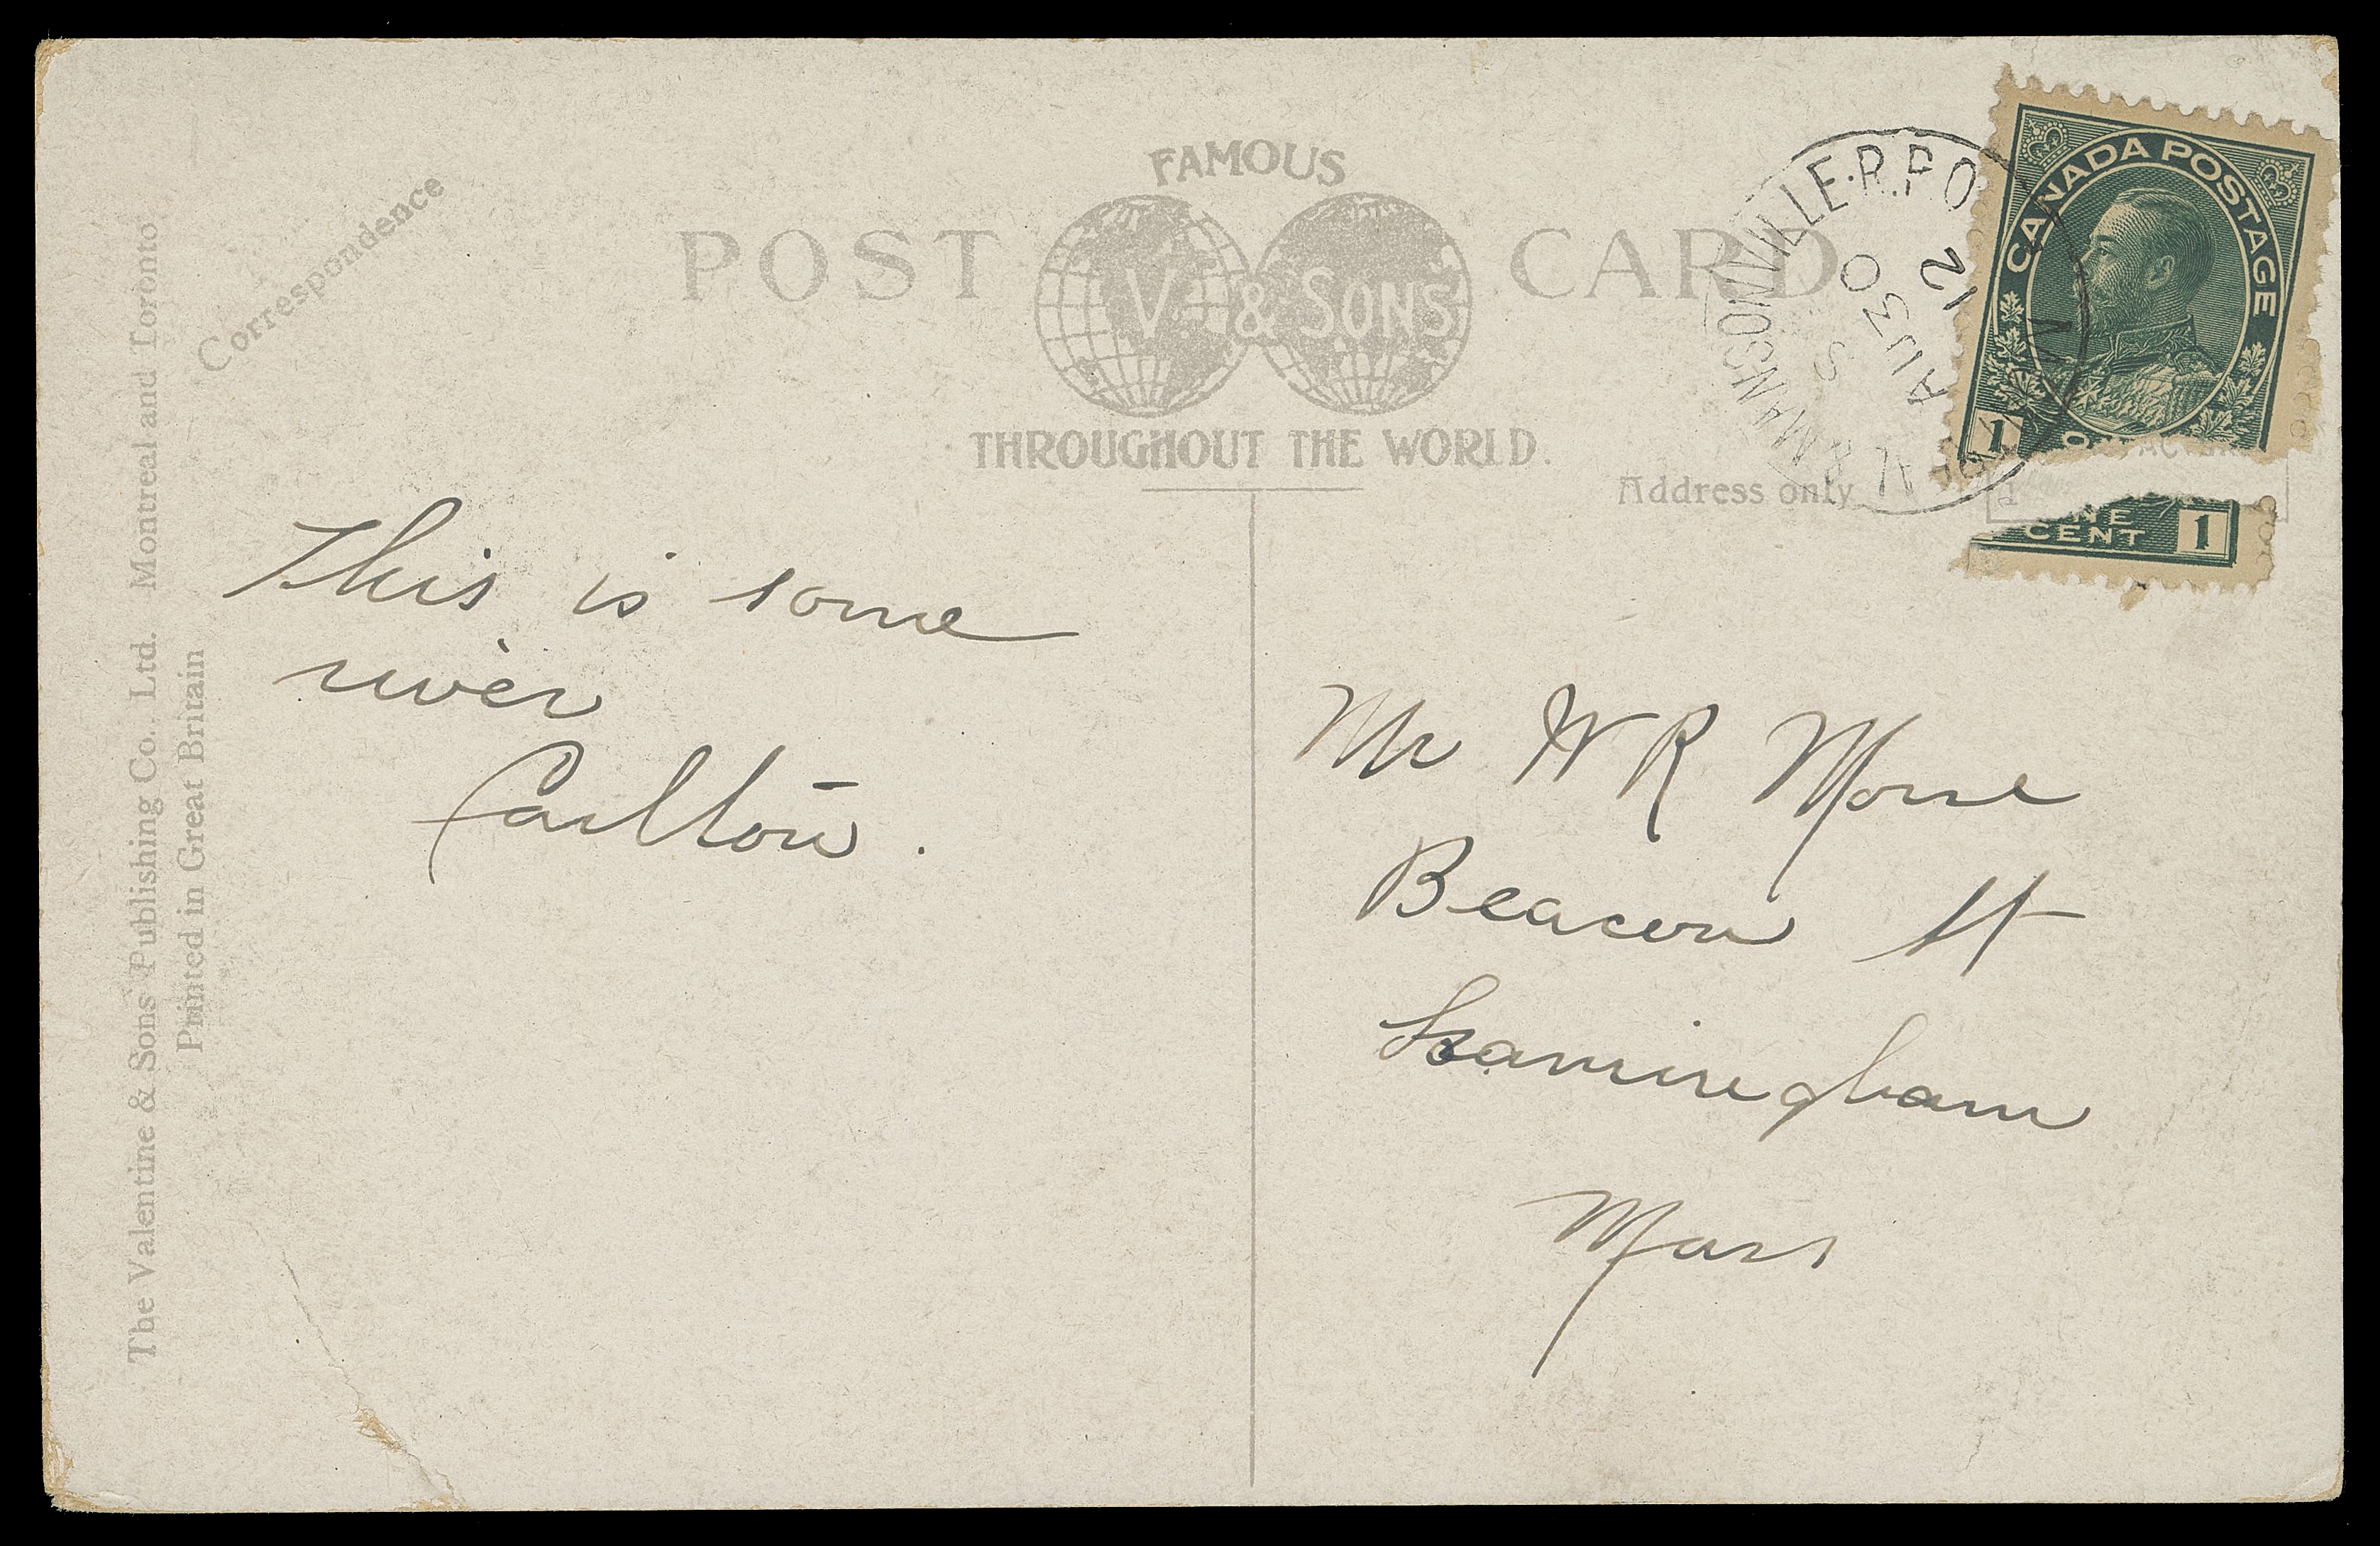 FAMOUS
POST CARD
V & SONS
THROUGHOUT THE WORLD.
Correspondence
Address only
The Valentine & Sons Publishing Co., Ltd. Montreal and Toronto
Printed in Great Britain
HERMANSONVILLE.R.P.O
S
AU 30
12
CANADA POSTAGE
1
NE
CENT
1
This is some
river
Carlton.
Mr W R Morse
Beacon St
Framingham
Mass